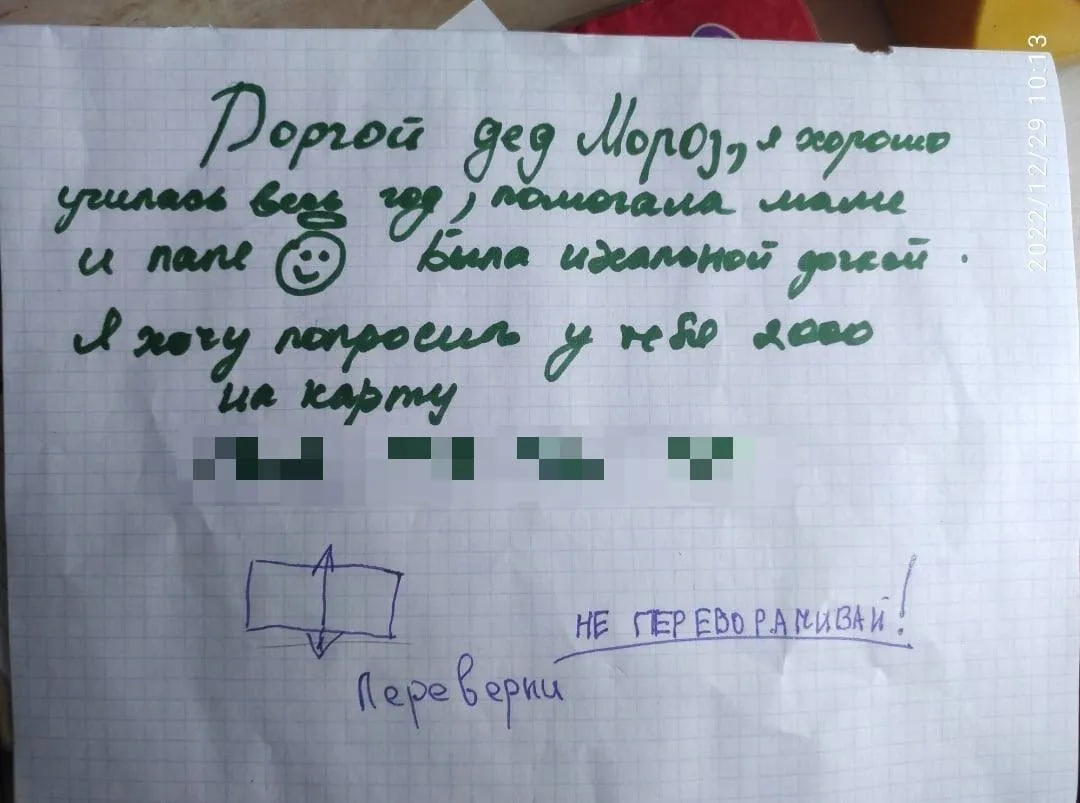 Доргой дед Мороз, я хорошо
училась весь год, помогала маме
и папе Была идеальной дочкой.
Я хочу попросить у тебя 2000
на карту
НЕ ПЕРЕВОРАЧИВАЙ!
Переверни
2022/12/29 10:13